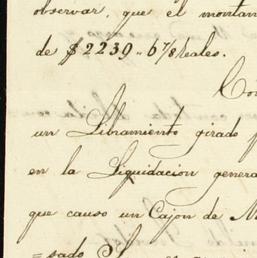 observar, que el montan
de $2239..6 7/8 reales.
Con
un Libramiento girado p
en la Liquidacion genera
que causo un Cajon de M
=sado